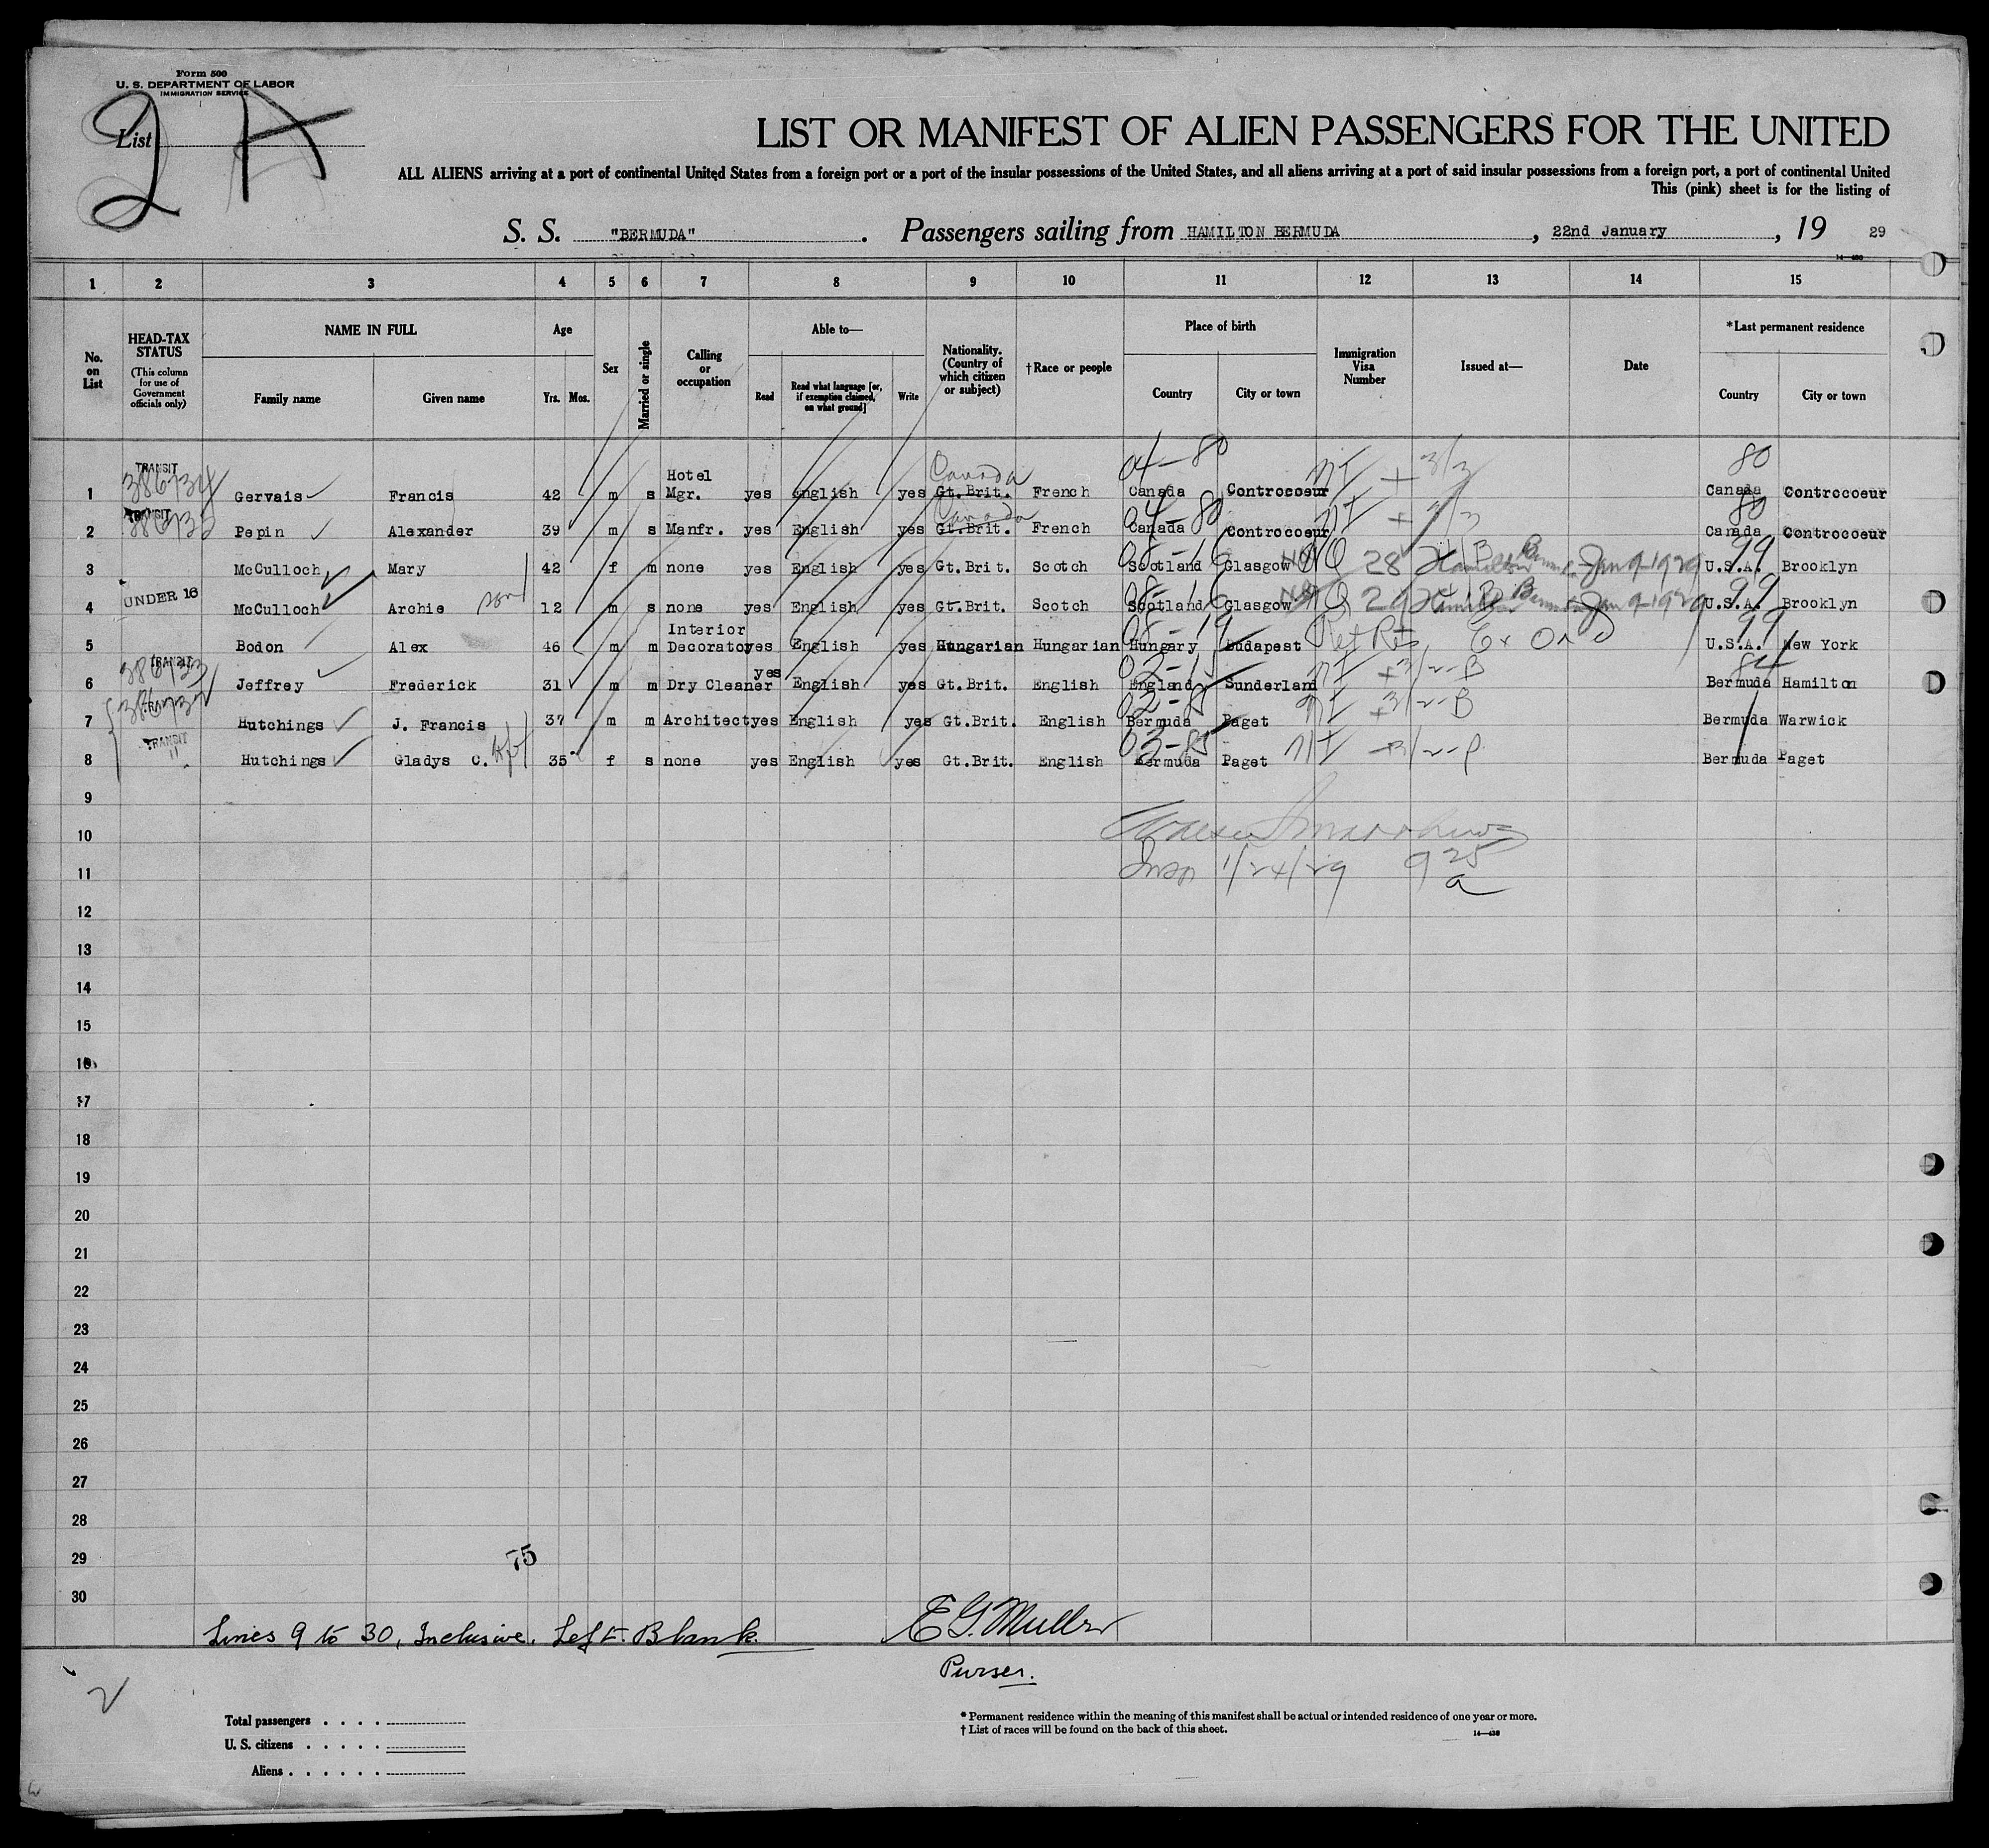 Form 500
U. S. DEPARTMENT OF LABOR
IMMIGRATION SERVICE
List 2 A
LIST OR MANIFEST OF ALIEN PASSENGERS FOR THE UNITED
ALL ALIENS arriving at a port of continental United States from a foreign port or a port of the insular possessions of the United States, and all aliens arriving at a port of said insular possessions from a foreign port, a port of continental United
This (pink) sheet is for the listing of
S. S. "BERMUDA" . Passengers sailing from HAMILTON BERMUDA , 22nd January , 19 29
1 2 3 4 5 6 7 8 9 10 11 12 13 14 15
No. on List
HEAD-TAX STATUS (This column for use of Government officials only)
NAME IN FULL
Family name Given name
Age
Yrs. Mos.
Sex
Married or single
Calling or occupation
Able to—
Read Read what language [or, if exemption claimed, on what ground] Write
Nationality. (Country of which citizen or subject)
†Race or people
Place of birth
Country City or town
Immigration Visa Number
Issued at—
Date
*Last permanent residence
Country City or town
TRANSIT Hotel Canada 04-80 NI + 3/3 80
1 Gervais Francis 42 m s Mgr. yes English yes Gt.Brit. French Canada Controcoeur Canada Controcoeur
TRANSIT Canada 04-80 NI + 3/3 80
2 Pepin Alexander 39 m s Manfr. yes English yes Gt.Brit. French Canada Controcoeur Canada Controcoeur
3 McCulloch Mary 42 f m none yes English yes Gt.Brit. Scotch Scotland Glasgow 28 Hamilton Jan 9-1929 U.S.A. Brooklyn
99
UNDER 16
4 McCulloch Archie son 12 m s none yes English yes Gt.Brit. Scotch Scotland Glasgow 29 Hamilton Jan 9-1929 U.S.A. Brooklyn
99
Interior
5 Bodon Alex 46 m m Decorator yes English yes Hungarian Hungarian Hungary Budapest Ret Pts U.S.A. New York
99
TRANSIT
6 Jeffrey Frederick 31 m m Dry Cleaner yes English yes Gt.Brit. English England Sunderland NI +3/2-B Bermuda Hamilton
7 Hutchings J. Francis 37 m m Architect yes English yes Gt.Brit. English Bermuda Paget NI +3/2-B Bermuda Warwick
TRANSIT
8 Hutchings Gladys C. 35 f s none yes English yes Gt.Brit. English Bermuda Paget NI Bermuda Paget
9
10
11 Insp 1/24/29 9 25 a
12
13
14
15
16
17
18
19
20
21
22
23
24
25
26
27
28
29 75
30
Lines 9 to 30, Inclusive, Left Blank. E G. Muller
Purser.
2
Total passengers . . . .
U. S. citizens . . . . .
Aliens . . . . . .
* Permanent residence within the meaning of this manifest shall be actual or intended residence of one year or more.
† List of races will be found on the back of this sheet.